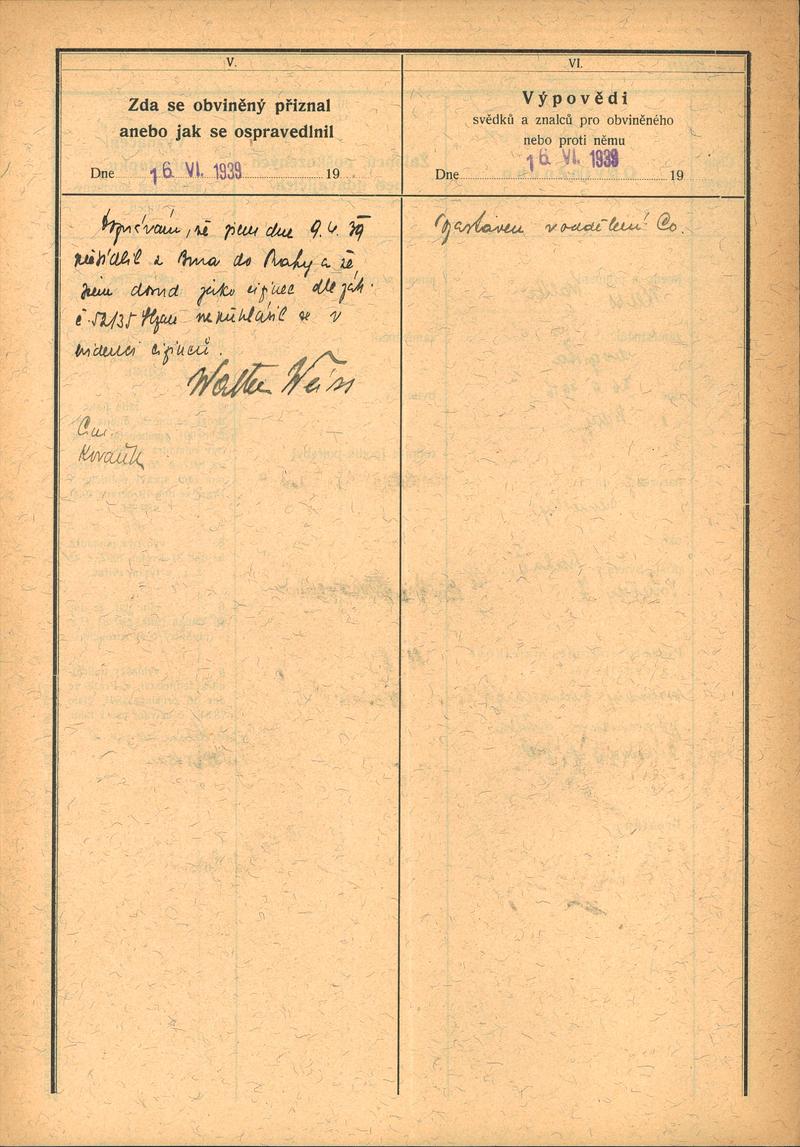 V.
Zda se obviněný přiznal
anebo jak se ospravedlnil
Dne 16 VI. 1939 19
že jsem dne 9.4.39
přesídlil z Brna do Prahy a že
jsem dosud jako cizinec dle zák.
č. 52/35 nepřihlásil se v
evidenci cizinců.
Walter Weiss
VI.
Výpovědi
svědků a znalců pro obviněného
nebo proti němu
Dne 16 VI. 1939 19
v oddělení Co.